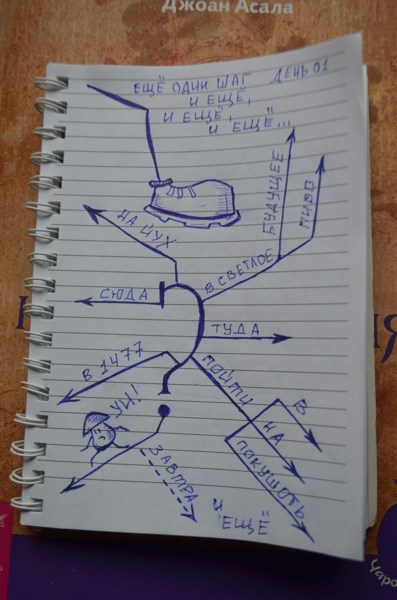 Джоан Асала
ЕЩЁ ОДНИ ШАГ ДЕНЬ 01
И ЕЩЁ,
И ЕЩЁ,
И ЕЩЁ...
БУДУЩЕЕ
ПИВО
НА ЙУХ
В СВЕТЛОЕ
СЮДА
ТУДА
В 1477
ПОЙТИ
УЙ!
В
НА
ПОКУШАТЬ
ЗАВТРА
И
ЕЩЁ